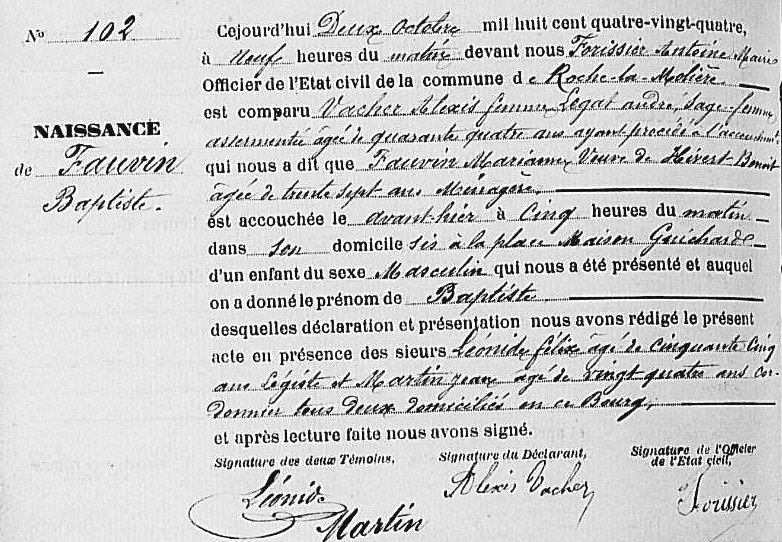 No 102
NAISSANCE
de Fauvin
Baptiste.
Cejourd'hui Deux Octobre mil huit cent quatre-vingt-quatre,
à neuf heures du matin devant nous Forissier Antoine Maire
Officier de l'Etat civil de la commune de Roche-la-Molière
est comparu Vacher Alexis femme Legat andré, sage-femme
assermentée âgée de quarante quatre ans ayant procédé à l'accouchement
qui nous a dit que Fauvin Marianne Veuve de Hivert Benoit
âgée de trente sept ans Ménagère.
est accouchée le avant-hier à Cinq heures du matin
dans son domicile sis à la place Maison Guichard
d'un enfant du sexe Masculin qui nous a été présenté et auquel
on a donné le prénom de Baptiste
desquelles déclaration et présentation nous avons rédigé le présent
acte en présence des sieurs Léonide félix âgé de cinquante Cinq
ans Légiste et Martin jean âgé de vingt quatre ans cor-
donnier tous deux domiciliés en ce Bourg,
et après lecture faite nous avons signé.
Signature des deux Témoins,
Signature du Déclarant,
Signature de l'Officier
de l'Etat civil,
Léonide
Martin
Alexis Vacher
Forissier